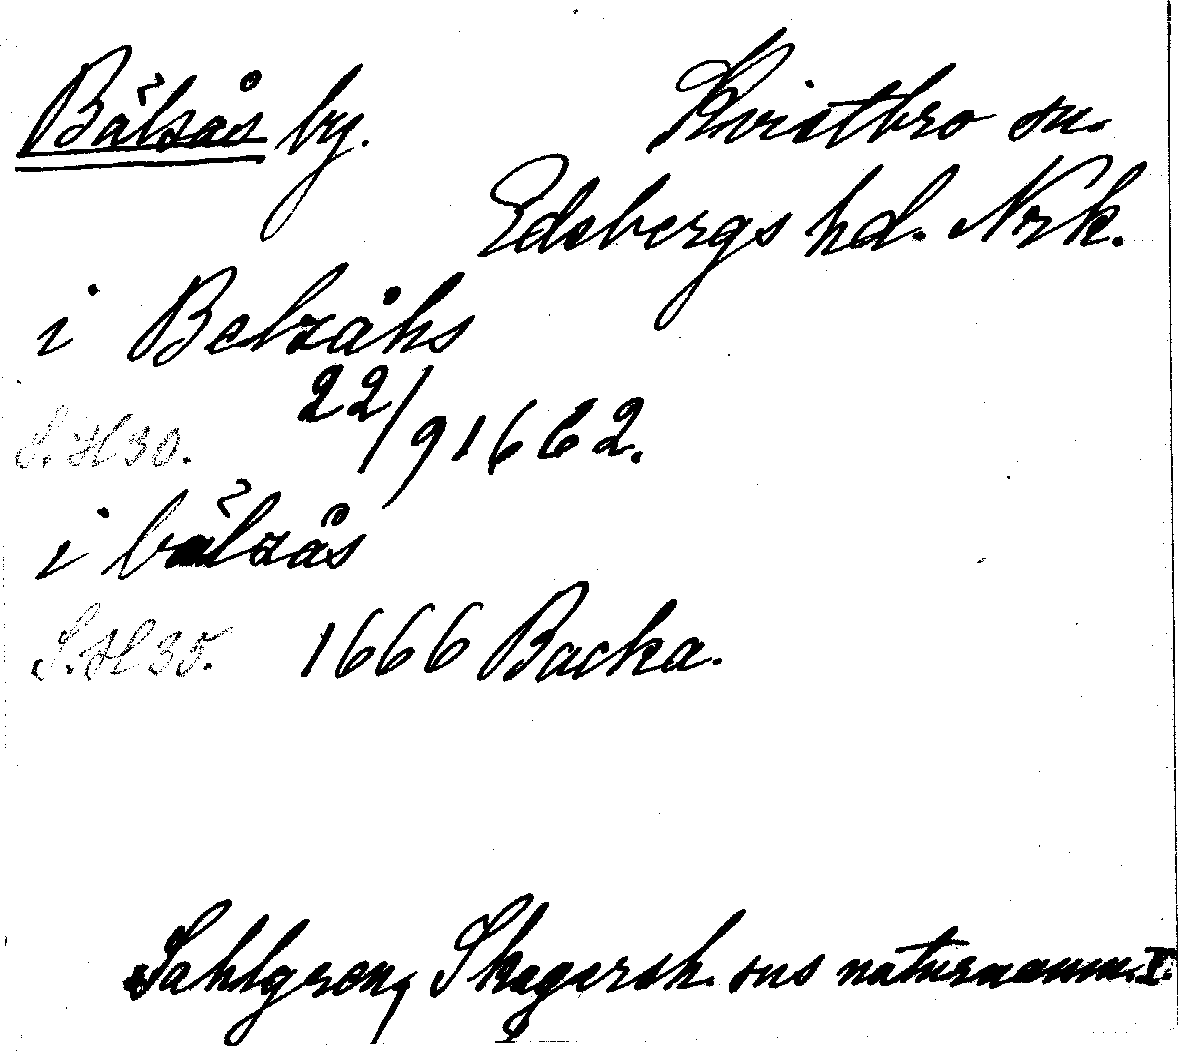 Bälsås by. Kvistbro sn.
Edsbergs hd. Nrk.
i Belzåhs
S.H 30. 22/9 1662.
i bälzås
S.H 35. 1666 Backa.
Sahlgren, Skagersh. sns naturnamn. I.